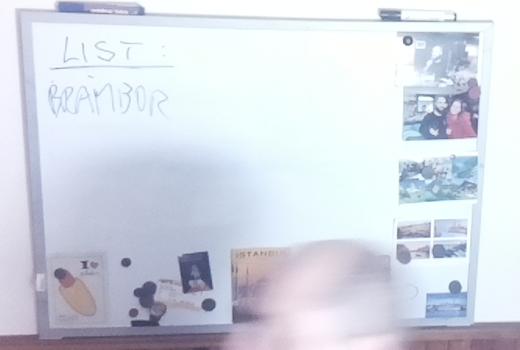 LIST:
BRAMBOR
ISTANBUL
I